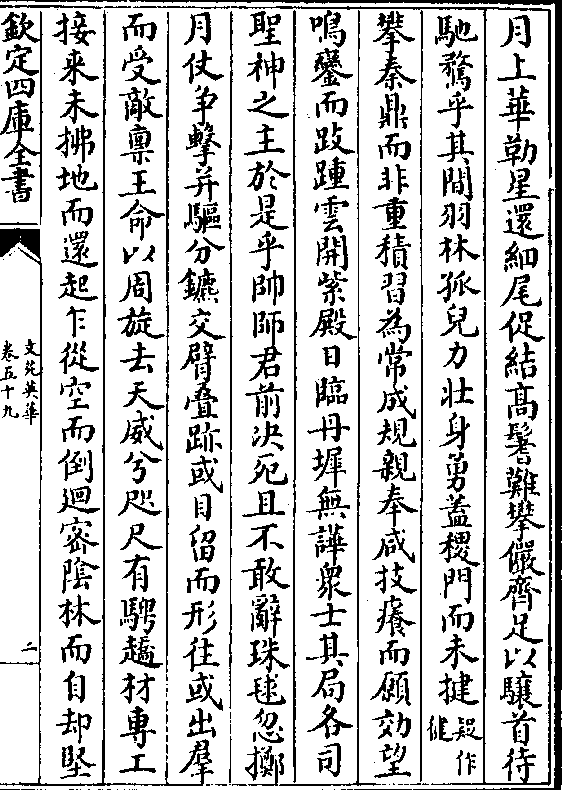 月上華勒星還細尾促結高鬐難攀儼齊足以驤首待
馳騖乎其間羽林孤兒力壯身勇蓋稷門而未揵疑作健
攀秦鼎而非重積習為常成規親奉咸技癢而願効望
鳴鑾而跂踵雲開紫殿日臨丹墀無譁衆士其局各司
聖神之主於是乎帥師君前決死且不敢辭珠毬忽擲
月仗争擊并驅分鑣交臂疊跡或目留而形往或出羣
而受敵稟王命以周旋去天威兮咫尺有騁趫材專工
接来未拂地而還起乍從空而倒迴密陰林而自却堅
欽定四庫全書
文苑英華
卷五十九
二